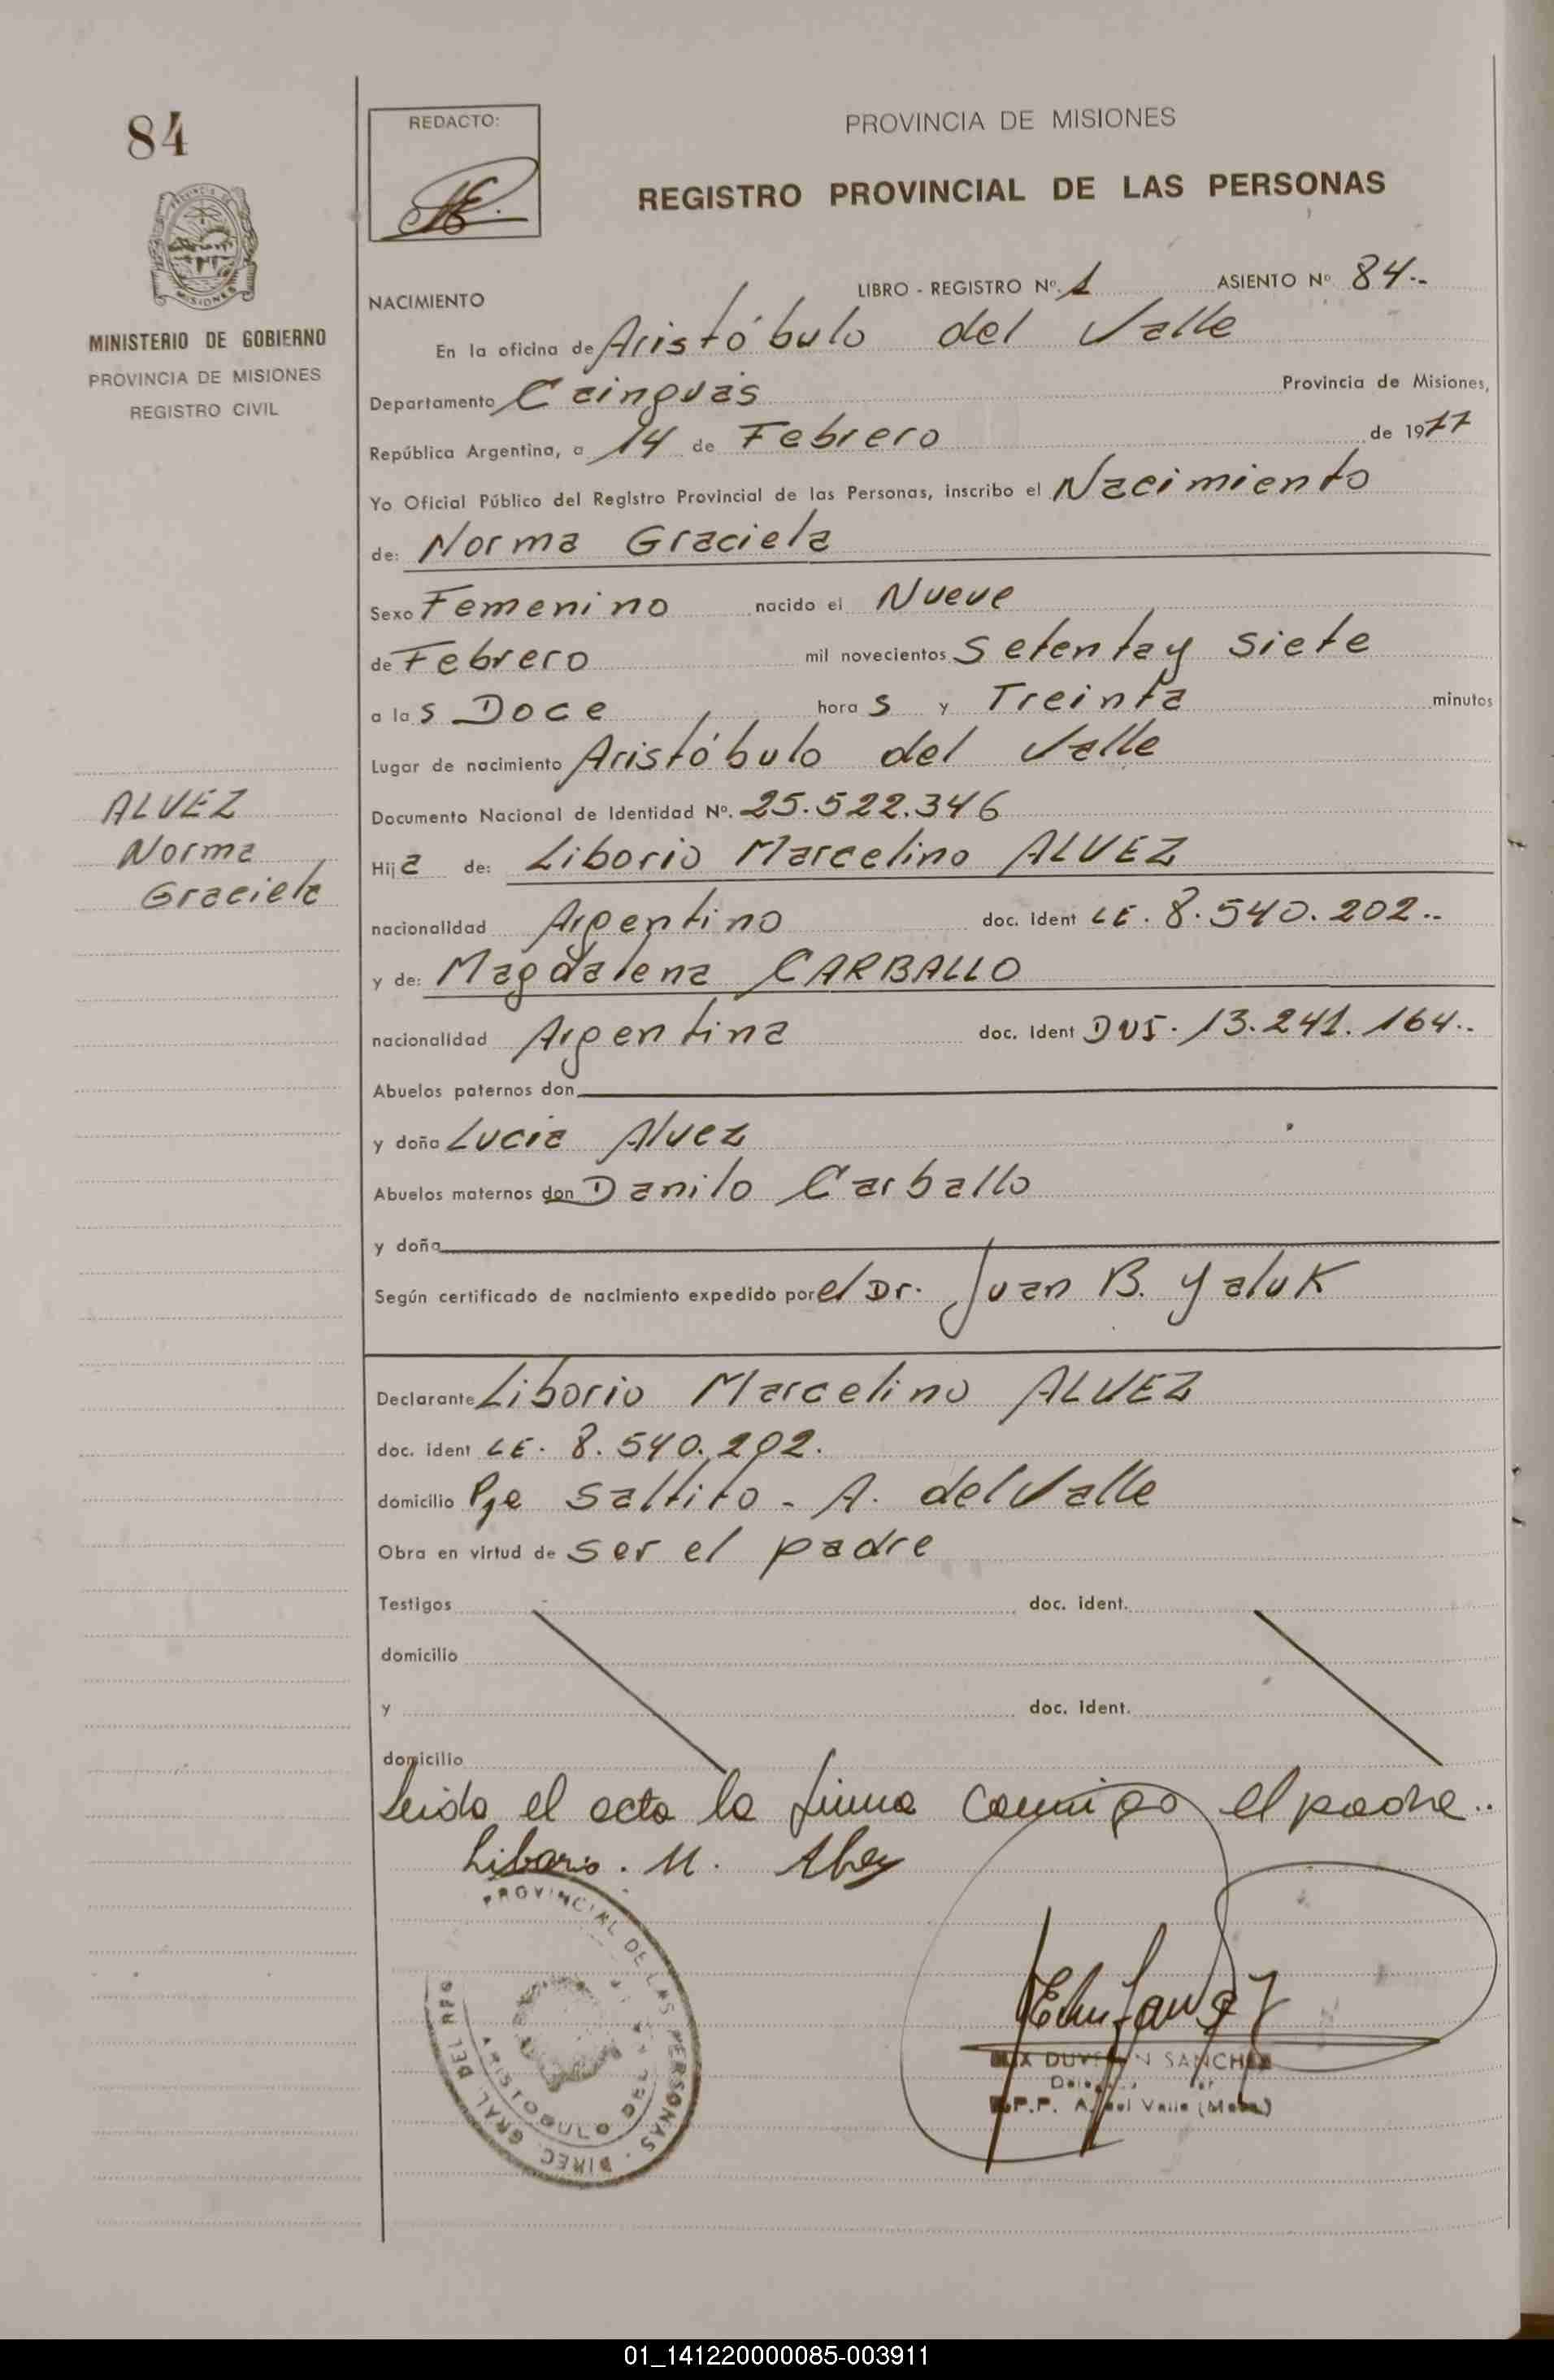 84
REDACTO:
PROVINCIA DE MISIONES
REGISTRO PROVINCIAL DE LAS PERSONAS
MISIONES
MINISTERIO DE GOBIERNO
PROVINCIA DE MISIONES
REGISTRO CIVIL
NACIMIENTO LIBRO - REGISTRO Nº. 1 ASIENTO Nº 84.-
En la oficina de Aristóbulo del Valle
Departamento Cainguás Provincia de Misiones,
República Argentina, a 14 de Febrero de 1977
Yo Oficial Público del Registro Provincial de las Personas, inscribo el Nacimiento
de: Norma Graciela
Sexo Femenino nacido el Nueve
de Febrero mil novecientos Setenta y Siete
a las Doce horas y Treinta minutos
Lugar de nacimiento Aristóbulo del Valle
Documento Nacional de Identidad Nº. 25.522.346
ALVEZ
Norma
Graciela
Hija de: Liborio Marcelino ALVEZ
nacionalidad Argentino doc. ident LE. 8.540.202.-
y de: Magdalena CARBALLO
nacionalidad Argentina doc. ident DNI. 13.241.164.-
Abuelos paternos don
y doña Lucia Alvez
Abuelos maternos don Danilo Carballo
y doña
Según certificado de nacimiento expedido por el Dr. Juan B. Yaluk
Declarante Liborio Marcelino ALVEZ
doc. ident LE. 8.540.202.
domicilio Pje Saltito - A. del Valle
Obra en virtud de ser el padre
Testigos doc. ident.
domicilio
y doc. ident.
domicilio
Leida el acta la firma conmigo el padre..
Liborio. M. Alvez
PROVINCIAL DE LAS PERSONAS. DIREC. GRAL. DEL REG
ARISTOBULO DEL
SANCHEZ
A. del Valle (Mnes.)
01_141220000085-003911